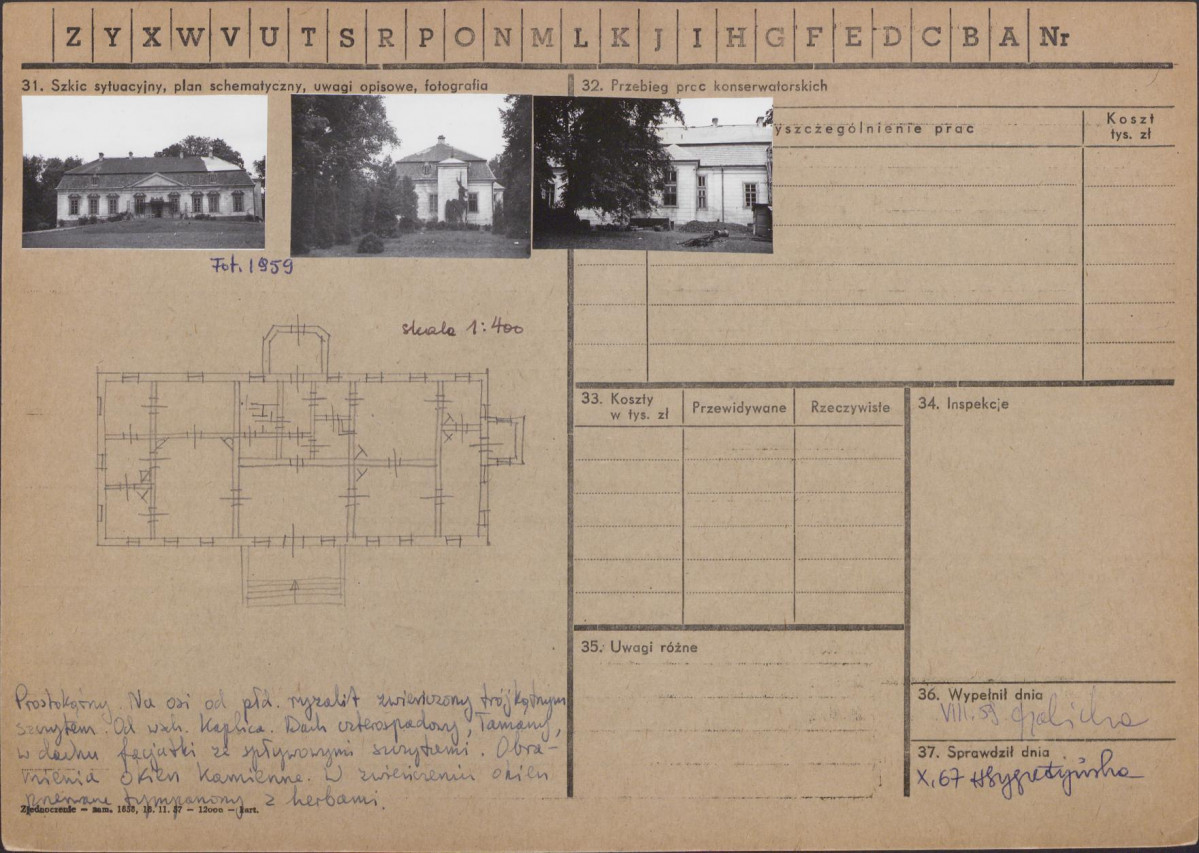 Z Y X W V U T S R P O N M L K J I H G F E D C B A Nr
31. Szkic sytuacyjny, plan schematyczny, uwagi opisowe, fotografia
Fot. 1959
skala 1:400
Prostokątny. Na osi od płd. ryzalit zwieńczony trójkątnym
szczytem. Od wsch. Kaplica. Dach czterospadowy, łamany,
w dachu facjatki ze spływowymi szczytami. Obra-
mienia okien kamienne. W zwieńczeniu okien
przerwane tympanony z herbami.
Zjednoczenie — zam. 1658, 16. 11. 57 — 12000 — kart.
32. Przebieg prac konserwatorskich
yszczególnienie prac
Koszt
tys. zł
33. Koszty
w tys. zł
Przewidywane
Rzeczywiste
34. Inspekcje
35. Uwagi różne
36. Wypełnił dnia
VIII. 59
37. Sprawdził dnia
X. 67